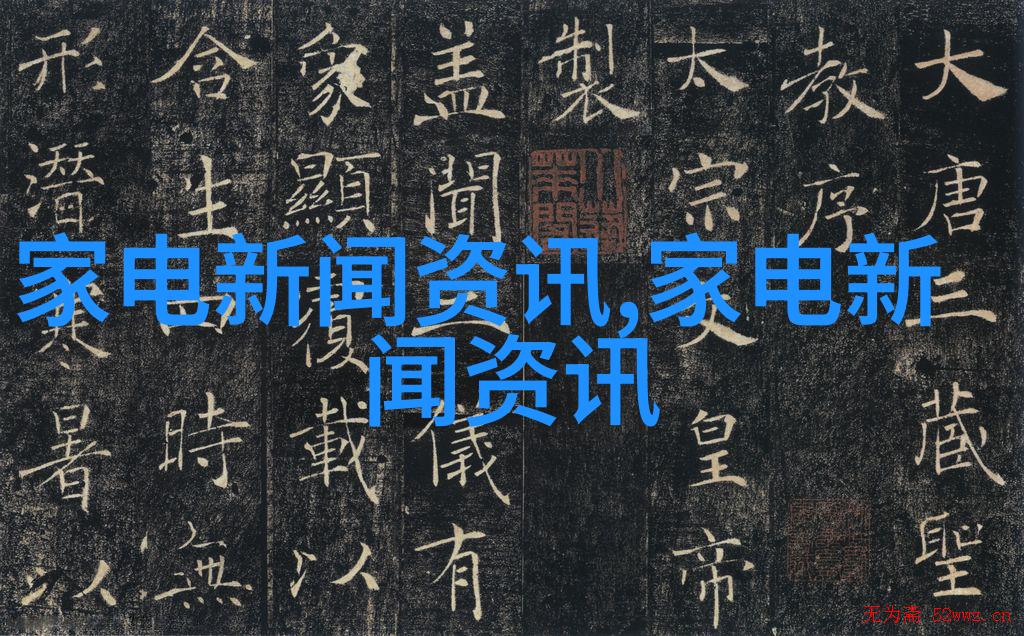 大唐三藏聖
教序
太宗文皇帝
製
盖聞二儀有
象顯覆載以
含生四時無
形潛寒暑以
家电新闻资讯,家电新
闻资讯
无为斋 52wwz.cn